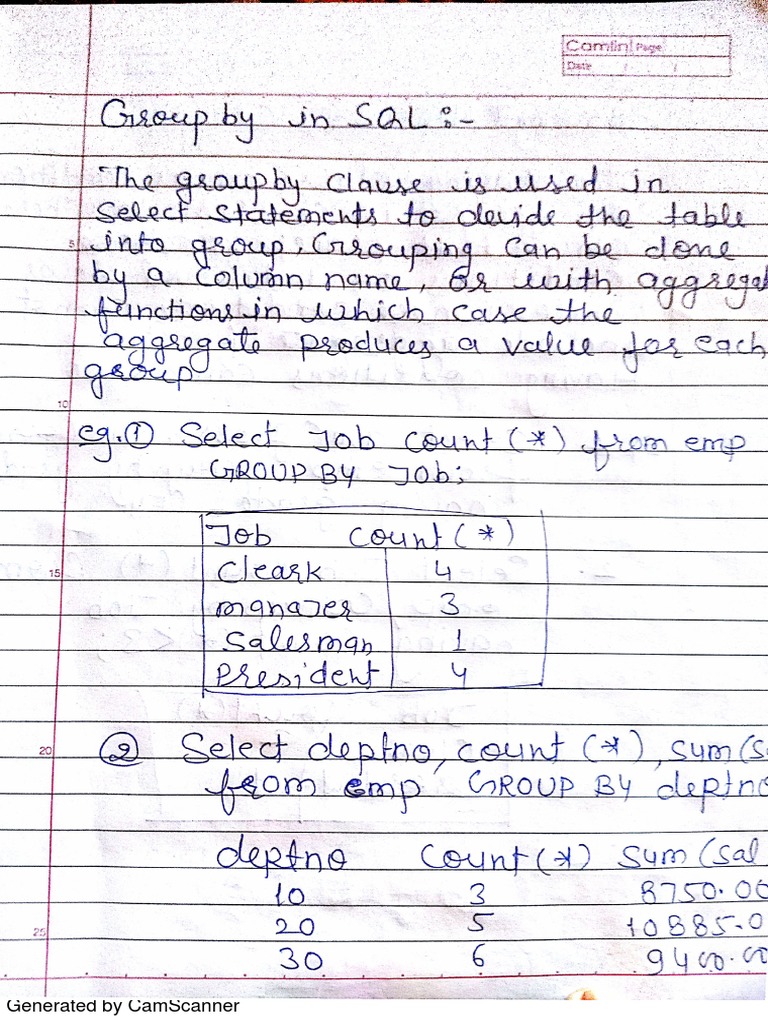 Camlin Page
Date / /
Group by in SQL :-
The group by clause is used in
Select statements to devide the table
5 into group, Grouping can be done
by a column name, or with aggregat
functions in which case the
aggregate produces a value for each
group
10
eg. ① Select Job count (*) from emp
GROUP BY Job;
Job count (*)
15 Cleark 4
manajer 3
Salesman 1
President 4
20 ② Select deptno, count (*), sum (s
from emp GROUP BY deptno
deptno Count (*) Sum (sal
10 3 8750.00
25 20 5 10885.0
30 6 9400.00
Generated by CamScanner